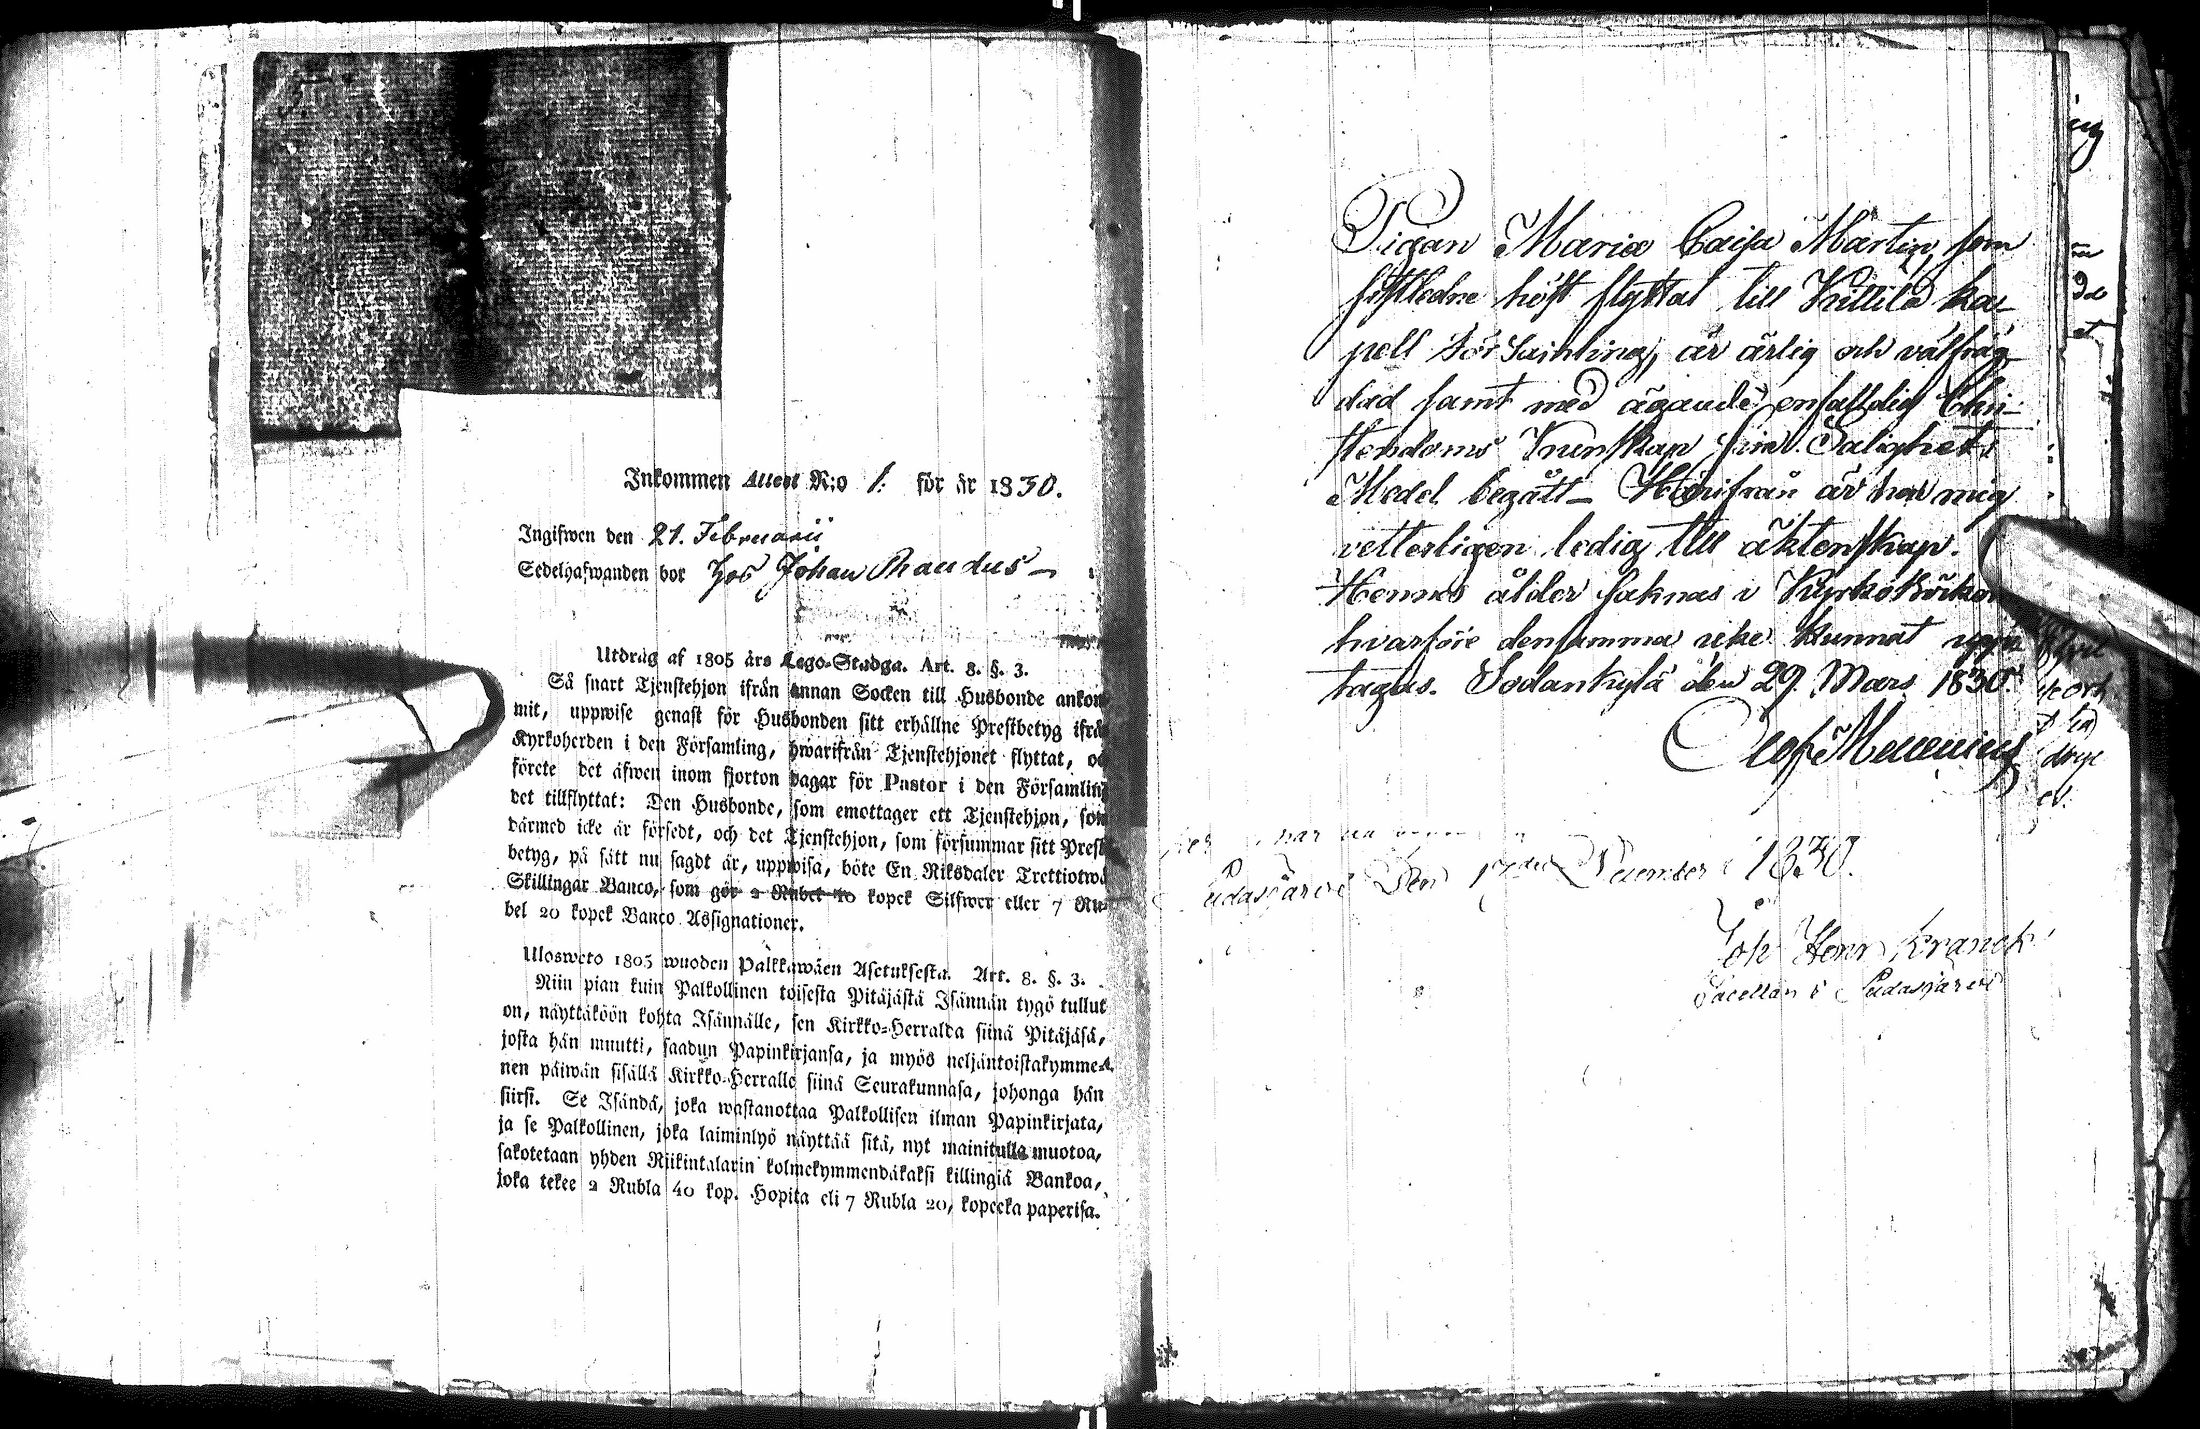 Inkommen Attest N:o 1. för år 1830.
Ingifwen den 21. Februarii
Sedelhafwanden bor hos Johan Raudus
Utdrag af 1805 års Lego-Stadga. Art. 8. §. 3.
Så snart Tjenstehjon ifrån annan Socken till Husbonde ankom-
mit, uppwise genast för Husbonden sitt erhållne Prestbetyg ifrån
Kyrkoherden i den Församling, hwarifrån Tjenstehjonet flyttat, och
förete det äfwen inom fjorton dagar för Pastor i den Församling
det tillflyttat: Den Husbonde, som emottager ett Tjenstehjon, som
därmed icke är försedt, och det Tjenstehjon, som försummar sitt Prest-
betyg, på sätt nu sagdt är, uppwisa, böte En Riksdaler Trettiotwå
Skillingar Banco, som gör 2 Rubel 40 kopek Silfwer eller 7 Ru-
bel 20 kopek Banco Assignationer.
Ulosweto 1805 wuoden Palkkawäen Asetuksesta. Art. 8. §. 3.
Niin pian kuin Palkollinen toisesta Pitäjästä Isännän tygö tullut
on, näyttäköön kohta Isännälle, sen Kirkko-Herralda siinä Pitäjäsä,
josta hän muutti, saadun Papinkirjansa, ja myös neljäntoistakymme-
nen päiwän sisällä Kirkko-Herralle siinä Seurakunnasa, johonga hän
siirsi. Se Isändä, joka wastanottaa Palkollisen ilman Papinkirjata,
ja se Palkollinen, joka laiminlyö näyttää sitä, nyt mainitulla muotoa,
sakotetaan yhden Riikintalarin kolmekymmendäkaksi killingiä Bankoa,
joka tekee 2 Rubla 40 kop. Hopita eli 7 Rubla 20, kopeeka paperisa.
Pigan Maria Caisa Martin, som
sistledne höst flyttat till Kittilä ka-
pell Församling, är ärlig och välfräg-
dad samt med ägande enfaldig Chri-
stendoms Kunskap sine Salighets
Medel begått - Härifrån är hon mig
vetterligen ledig till äktenskap.
Hennes ålder saknas i Kyrkoböcker
hvarföre densamma icke kunnat upp-
tagas. Sodankylä den 29. Mars 1830.
Olof Mecenius
Pudasjärvi Den 17 December 1830.
Joh Henr Kranck
Sacellan i Pudasjärvi